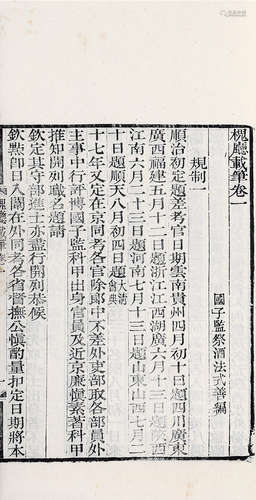 槐廳載筆卷一
國子監祭酒法式善編
規制一
順治初定題差考官日期雲南貴州四月初十日題四川廣東
廣西福建五月十二日題浙江江西湖廣六月初十日題陝西
江南六月二十三日題河南七月十三日題山東山西七月二
十日題順天八月初四日題大清會典
十七年又定在京同考各官除郎中不差外吏部取各部員外
主事中行評博國子監科甲出身官員及近京廉慎素著科甲
推知開列職名題請
欽定其守部進士亦盡行開列恭候
欽點即日入闈在外同考各省督撫公慎酌量扣定日期將本